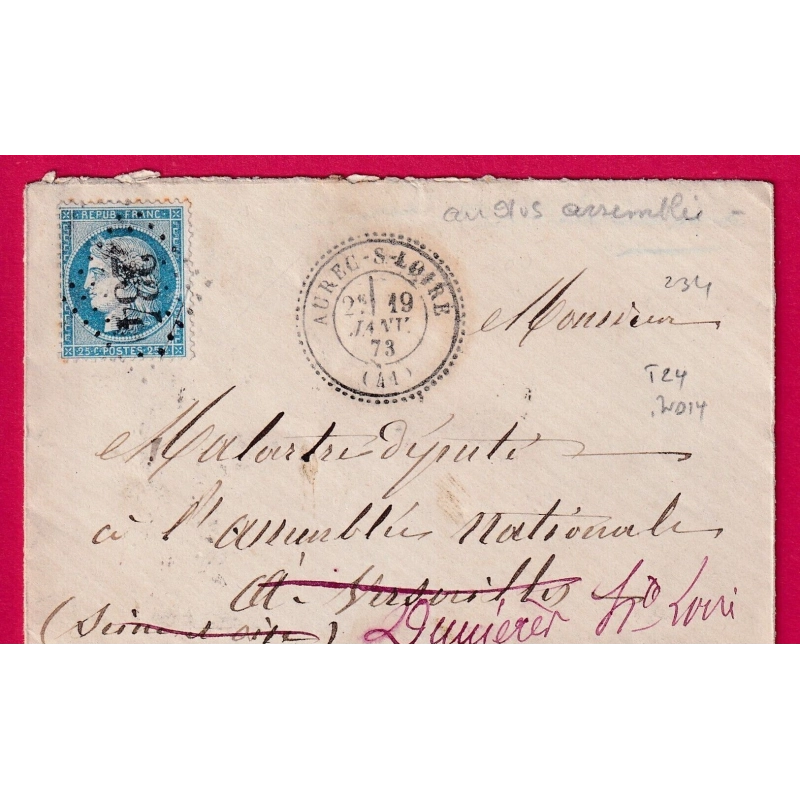 REPUB. FRANC.
234
25 C. POSTES 25 C.
AUREC-S-LOIRE
2E 19
JANV.
73
(41)
au dos assemblée
234
T24
Monsieur
Malartre député
à l'assemblée nationale
à Versailles
(Seine & Oise) Dunières Hte Loire